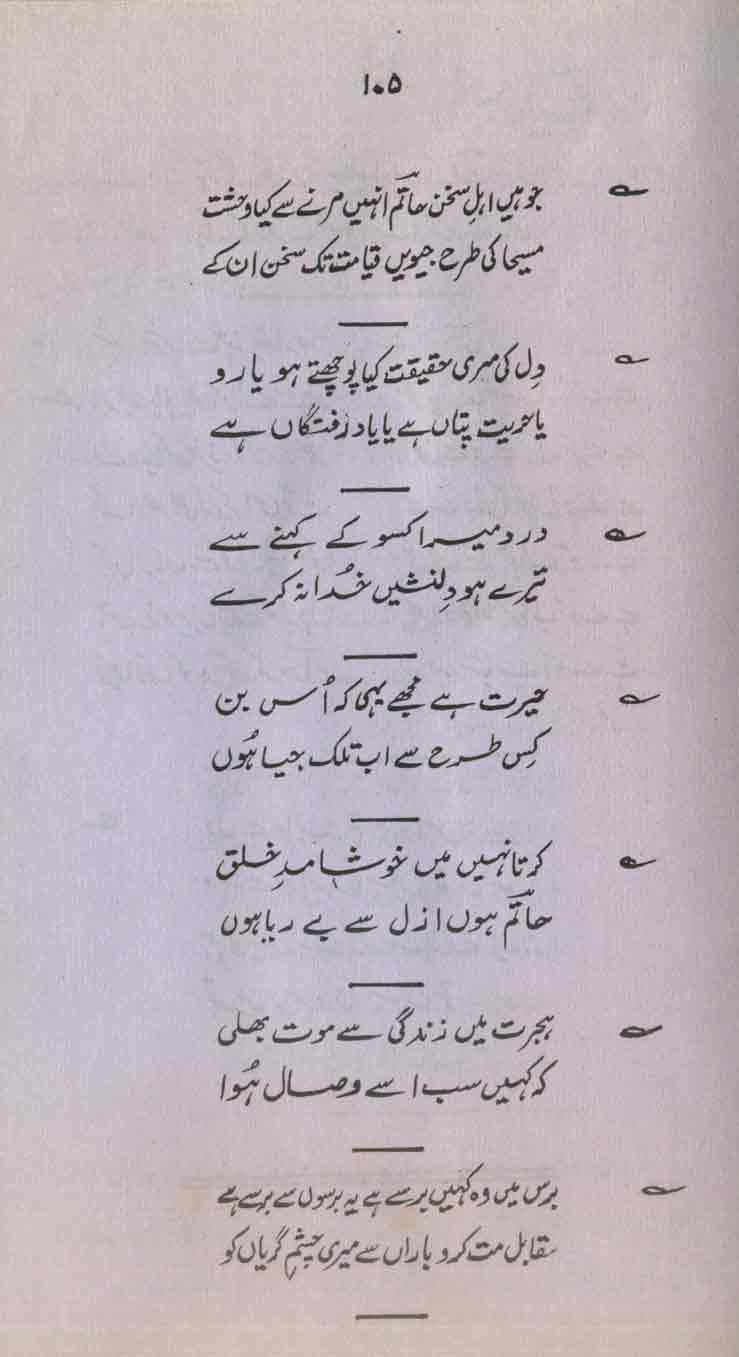 ۱۰۵
؎ جو ہیں اہلِ سخن حاتمؔ انہیں مرنے سے کیا وحشت
مسیحا کی طرح جیویں قیامت تک سخن ان کے
؎ دِل کی مری حقیقت کیا پوچھتے ہو یارو
یا حربتِ بتاں ہے یا یاد رفتگاں ہے
؎ درد میرا کسو کے کہنے سے
تیرے ہو دِلنشیں خُدا نہ کرے
؎ حیرت ہے مجھے یہی کہ اُس بن
کِس طرح سے اب تلک جیا ہُوں
؎ کرتا نہیں میں خوشامدِ خلق
حاتمؔ ہوں ازل سے بے ریا ہوں
؎ ہجرت میں زندگی سے موت بھلی
کہ کہیں سب اسے وصال ہُوا
؎ برس میں وہ کہیں برسے ہے یہ برسوں سے برسے ہے
مقابل مت کرو باراں سے میری چشمِ گریاں کو